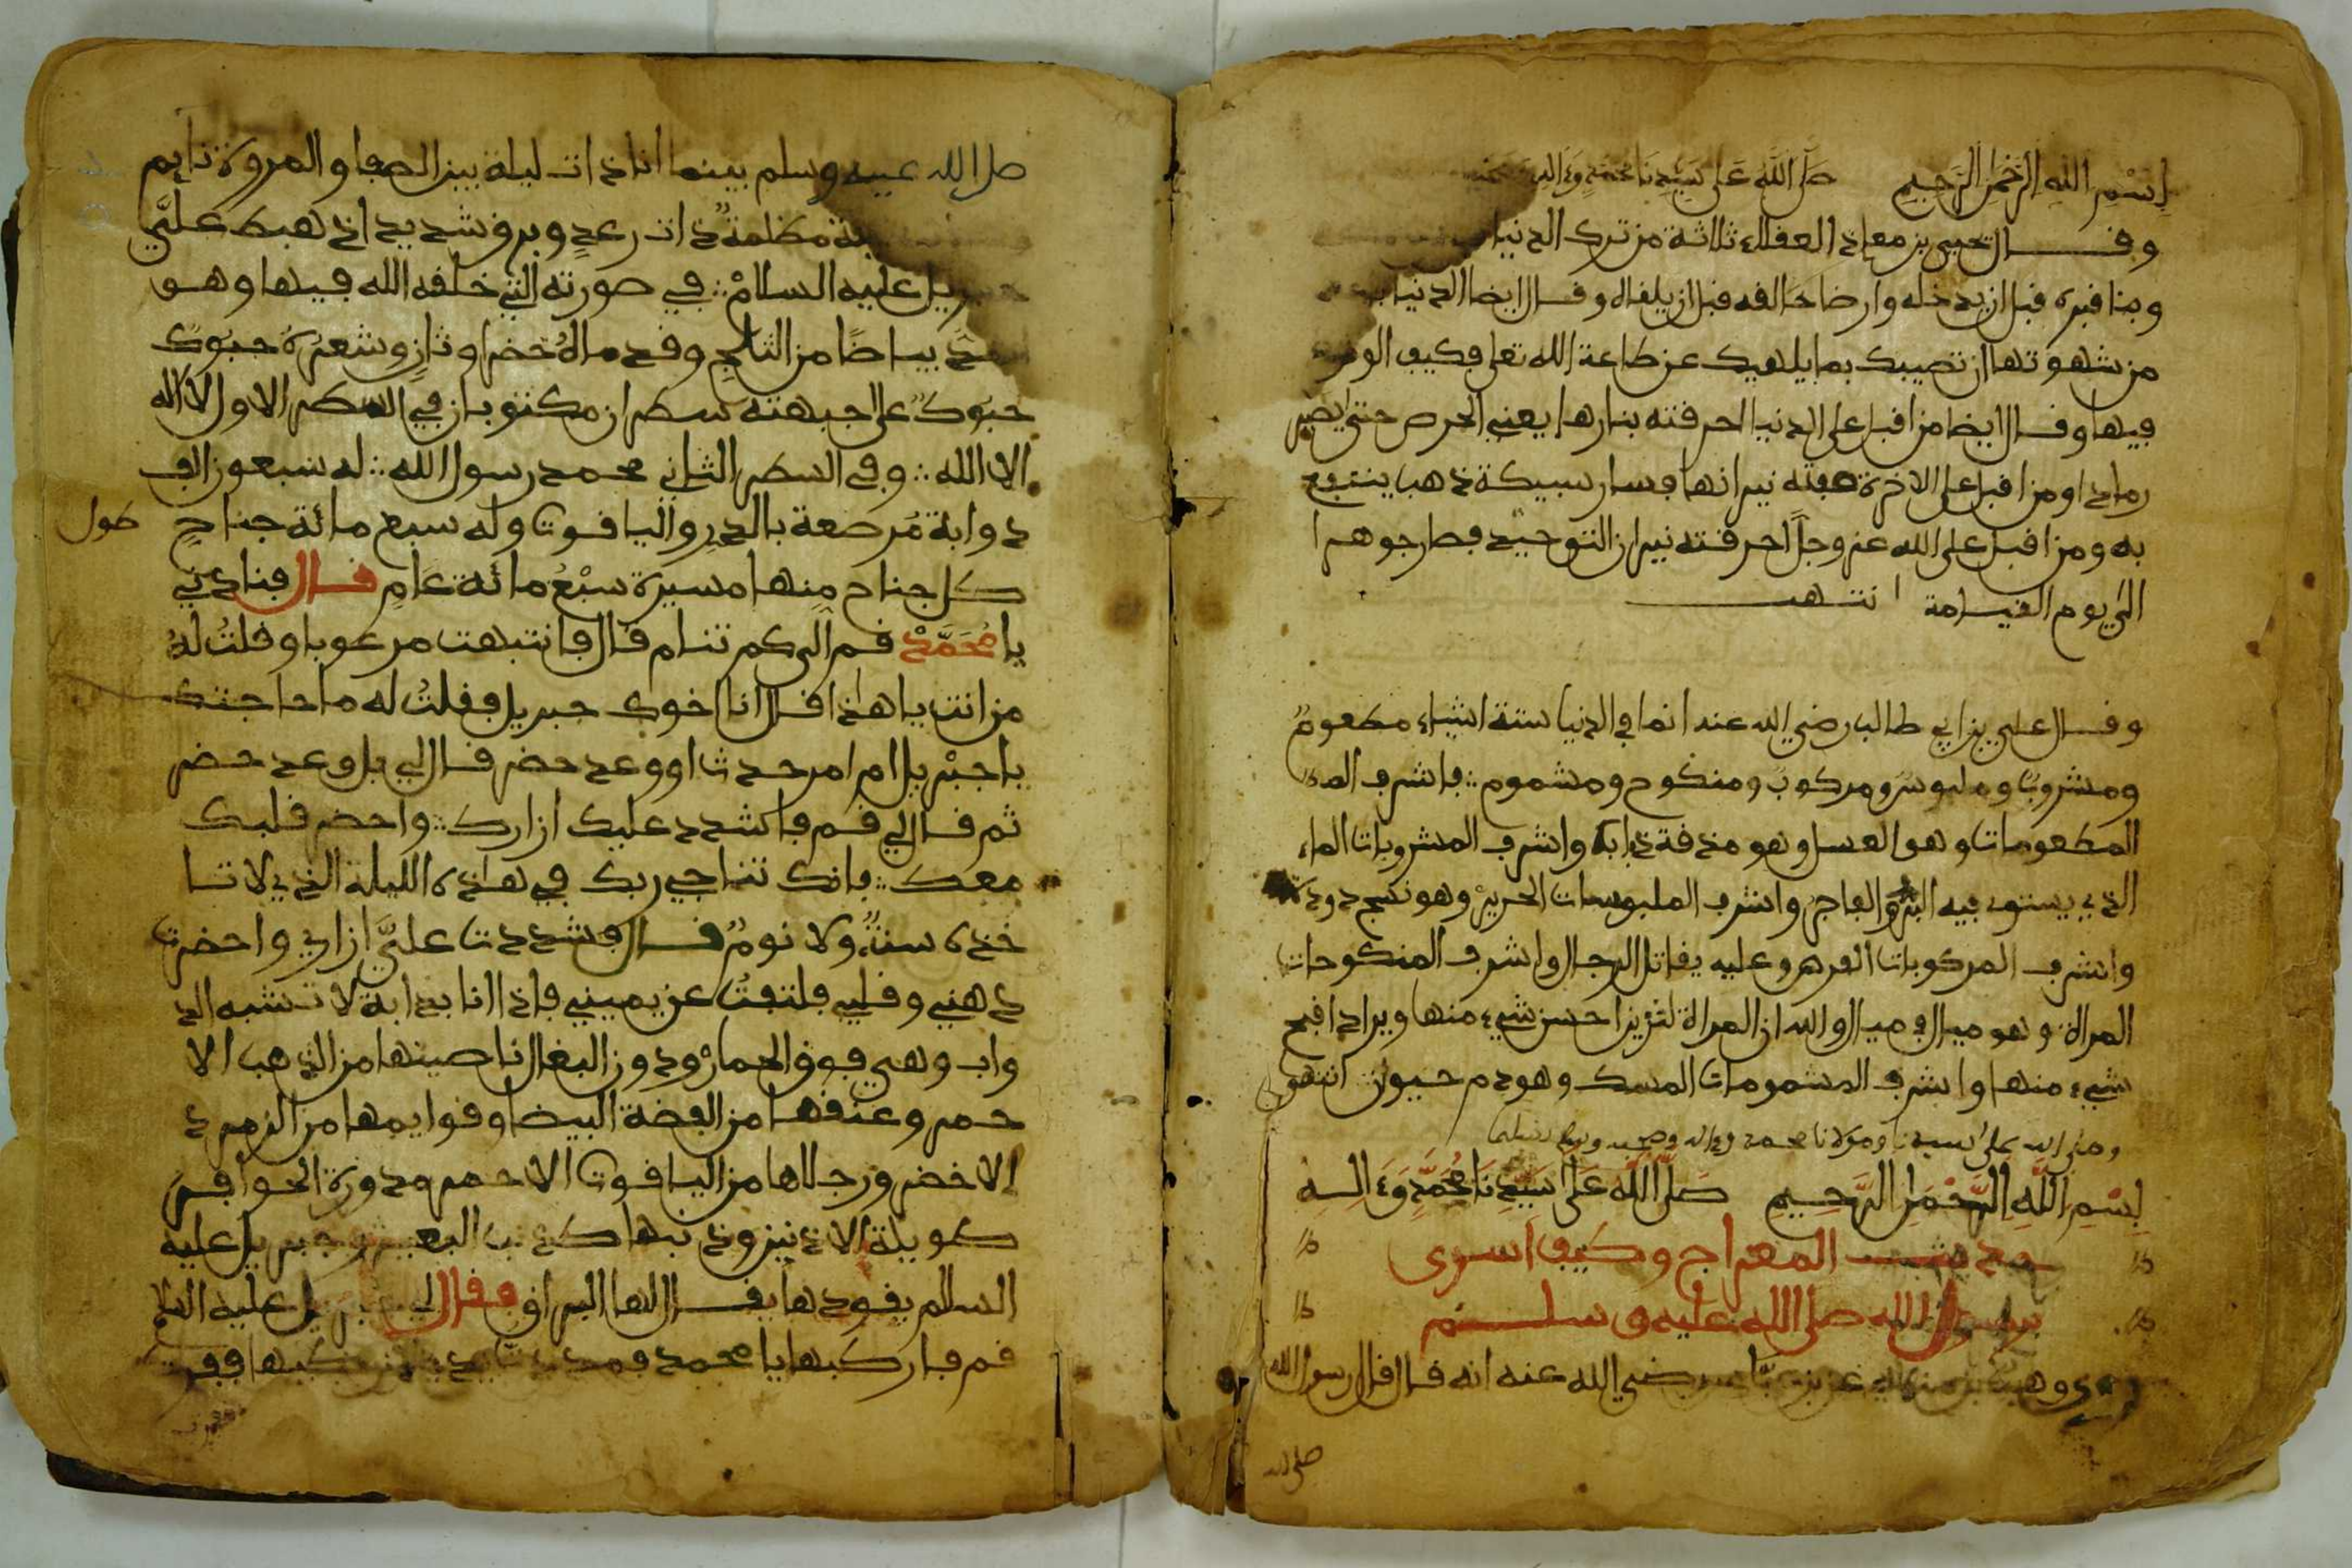 بسم الله الرحمن الرحيم صلى الله على سيدنا محمد وءاله
وقال يحيى بن معاذ العقلاء ثلاثة من ترك الدنيا
وبنا قبره قبل ان يدخله وارضا خالقه قبل ان يلقاه وقال ايضا الدنيا
من شهوتها ان تصيبك بما يلهيك عن طاعة الله تعلى فكيف
فيها وقال ايضا من اقبل على الدنيا احرقته بنارها يعني الحرص حتى يصير
رمادا ومن اقبل على الاخرة نيرانها فسار سبيكة ذهب ينتفع
به ومن اقبل على الله عز وجل احرقته نيران التوحيد فصار جوهرا
الى يوم القيامة انتهى
وقال علي بن ابي طالب رضي الله عنه انما في الدنيا ستة اشياء مطعوم
ومشروب وملبوس ومركوب ومنكوح ومشموم فاشرف
المطعومات وهو العسل وهو مذقة ذبابة واشرف المشروبات الماء
الذي يستوي فيه البر والفاجر واشرف الملبوسات الحرير وهو نسج دودة
واشرف المركوبات الفرس وعليه يقاتل الرجال واشرف المنكوحات
المراة وهو مبال في مبال والله ان المراة لتزين احسن شيء منها ويراد اقبح
شيء منها واشرف المشمومات المسك وهو دم حيوان انتهى
وصلى الله على سيدنا ومولانا محمد وءاله وصحبه وسلم تسليما
بسم الله الرحمن الرحيم صلى الله على سيدنا محمد وءاله
حديث المعراج وكيف اسرى
برسول الله صلى الله عليه وسلم
وهب بن منبه عن رضي الله عنه انه قال قال رسول الله
صلى الله
صلى الله عليه وسلم بينما انا ذات ليلة بين الصفا والمروة نايم
مظلمة ذات رعد وبرق شديد اذ هبط علي
عليه السلام في صورته التي خلقه الله فيها وهو
بياضا من الثلج وقدماه خضراوتان وشعره حبوك
حبوك على جبهته سطران مكتوبان في السطر الاول لا اله
الا الله وفي السطر الثاني محمد رسول الله له سبعون الف
دوابة مرصعة بالدر والياقوت وله سبع مائة جناح
طول
كل جناح منها مسيرة سبع مائة عام قال فنادني
يا محمد قم الى كم تنام قال فانتبهت مرعوبا وقلت له
من انت يا هاذا قال انا اخوك جبريل فقلت له ما حاجتك
يا جبريل ام امر حدث او وعد حضر قال لي بل وعد حضر
ثم قال لي قم فاشدد عليك ازارك واحضر قلبك
معك فانك تناجي ربك في هاذه الليلة الذي لا تا
خذه سنة ولا نوم قال فشددت علي ازاري واحضرت
ذهني وقلبي فلتفت عن يميني فاذا انا بدابة لا تشبه الد
واب وهي فوق الحمار ودون البغال ناصيتها من الذهب الا
حمر وعنقها من الفضة البيضا وقوايمها من الزمرد
الاخضر ورجلاها من الياقوت الاحمر مدورة الحوافر
طويلة الاذنين وذنبها كذنب البعير وجبريل عليه
السلام يقودها يقال لها البراق فقال لي جبريل عليه السلا
قم فاركبها يا محمد